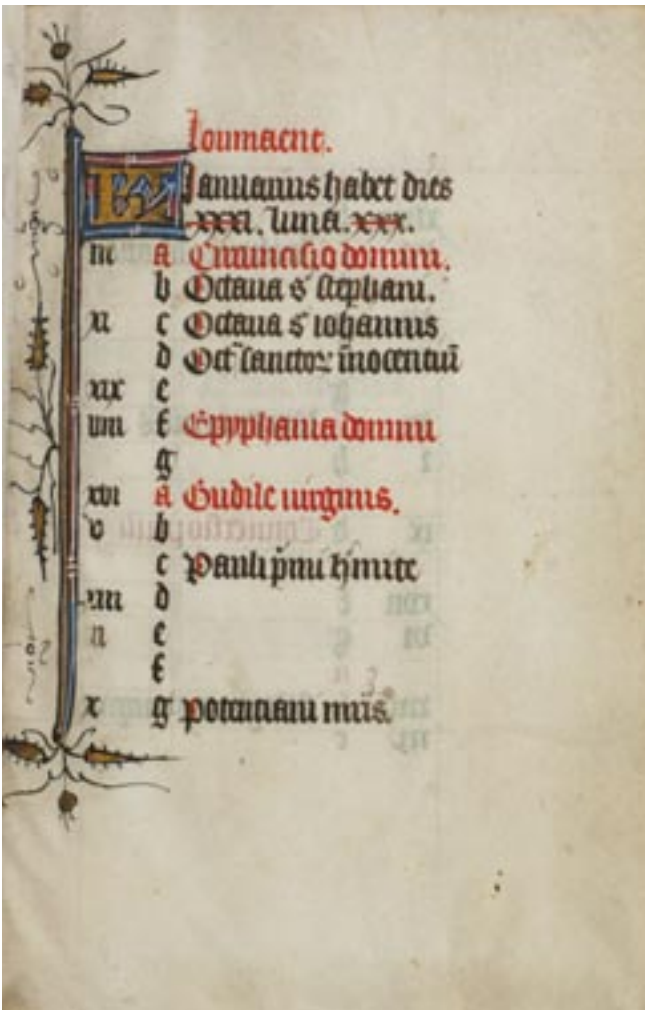 Loumaent.
KL Januarius habet dies
xxxi. luna. xxx.
iii a Circuncisio domini.
b Octaua s̄ stephani.
xi c Octaua s̄ iohannis
d Oct̄ sanctoꝝ īnocentiū
xix e
viii f Epyphania domini
g
xvi a Gudile uirginis.
v b
c Pauli p̄mi h̄mite
xiii d
ii e
f
x g potentiani mr̄is.